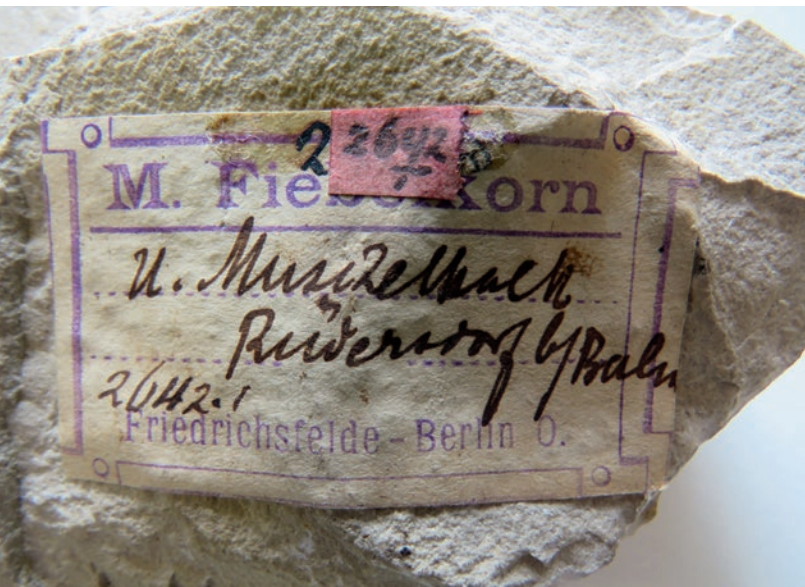 2 2642
M. Fiebelkorn
U. Muschelkalk
Rüdersdorf b/
2642.1
Friedrichsfelde - Berlin O.